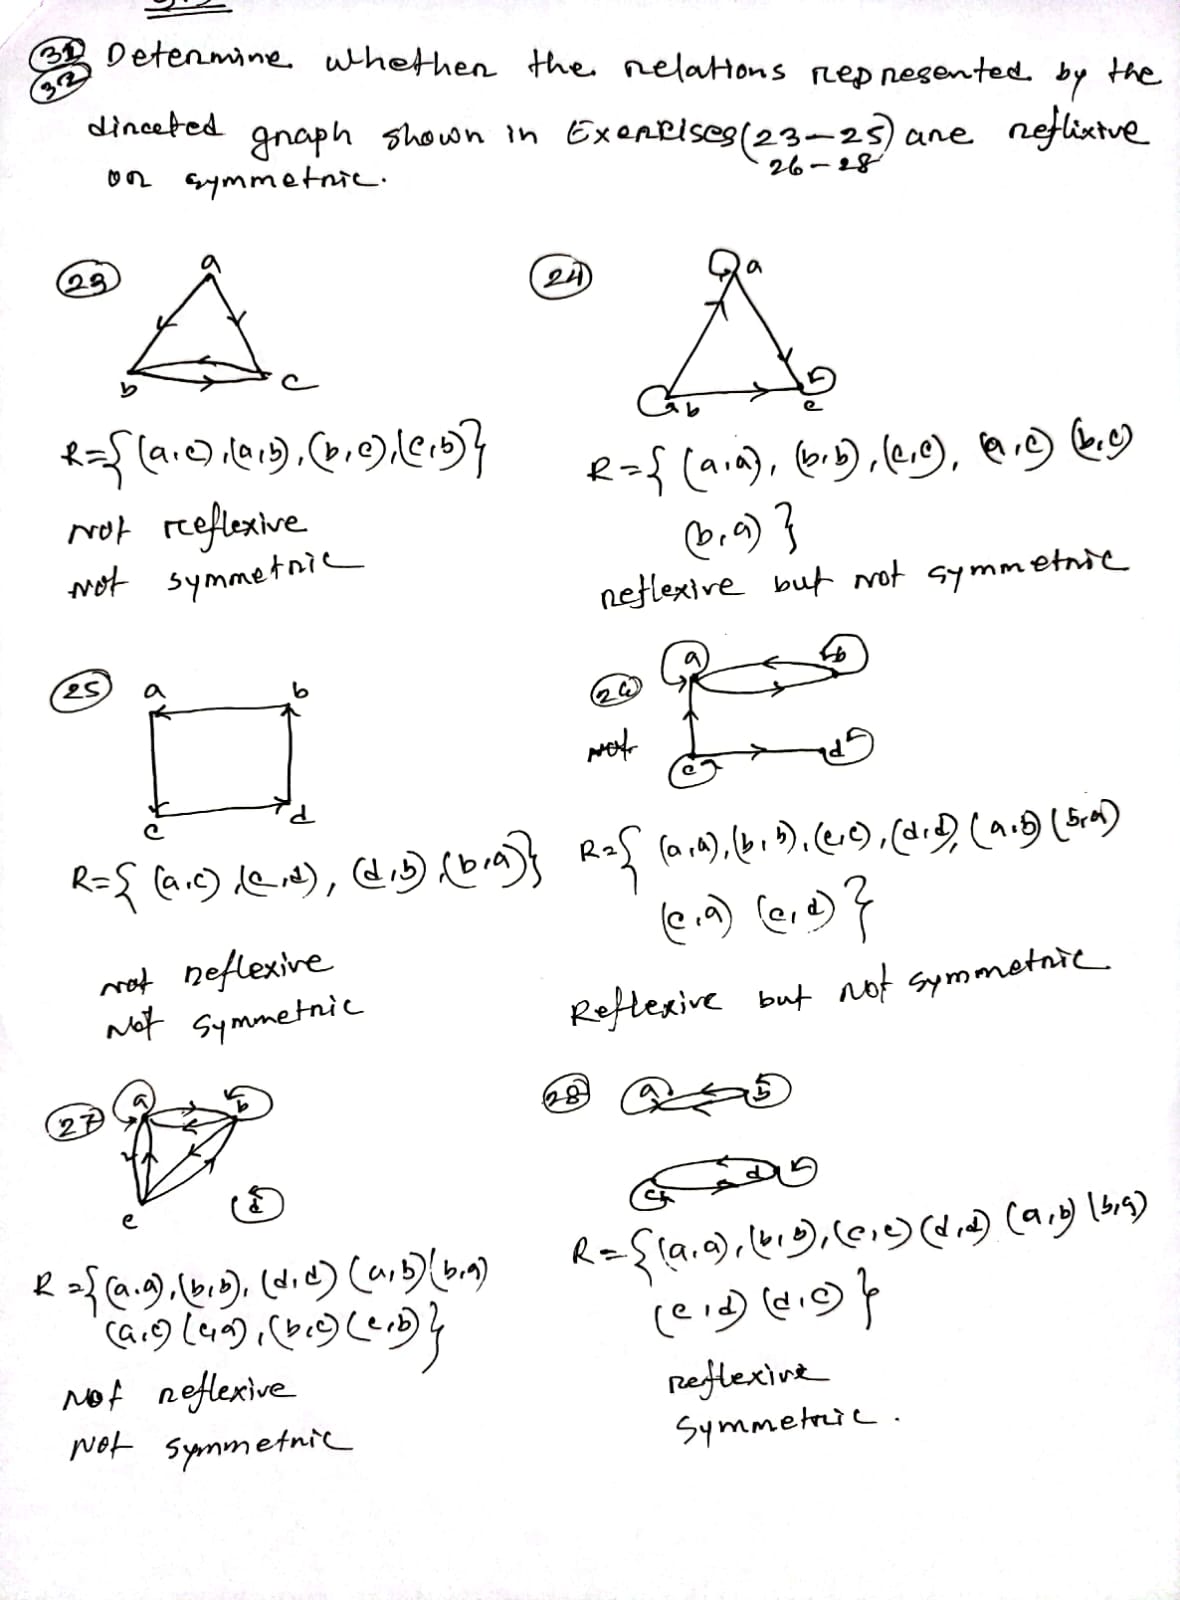 31 Determine whether the relations represented by the
32 dirceted graph shown in Exercises (23-25) are reflixive
26-28
or symmetric.
23
a
b c
R={(a,c),(a,b),(b,c),(c,b)}
not reflexive
not symmetric
24
a
b c
R={(a,a), (b,b),(c,c), (a,c) (b,c)
(b,a)}
reflexive but not symmetric
25
a b
c d
R={(a,c),(c,d), (d,b),(b,a)}
not reflexive
Not symmetric
26
a b
not
c d
R={(a,a),(b,b),(c,c),(d,d),(a,b)(b,a)
(c,a) (c,d)}
Reflexive but not symmetric
27
a b
c d
R={(a,a),(b,b),(d,d)(a,b)(b,a)
(a,c)(c,a),(b,c)(c,b)}
Not reflexive
Not symmetric
28
a b
c d
R={(a,a),(b,b),(c,c)(d,d)(a,b)(b,a)
(c,d)(d,c)}
reflexive
Symmetric.